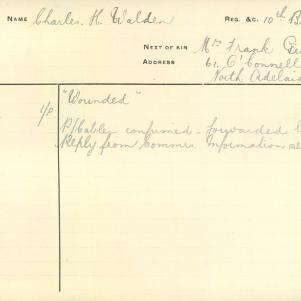 NAME Charles. H. Walden REG. &C. 10th B
NEXT OF KIN Mrs Frank
ADDRESS 61. O'Connell
North Adelai
1/P "Wounded"
P/Cable confirmed - forwarded
Reply from Commn Information